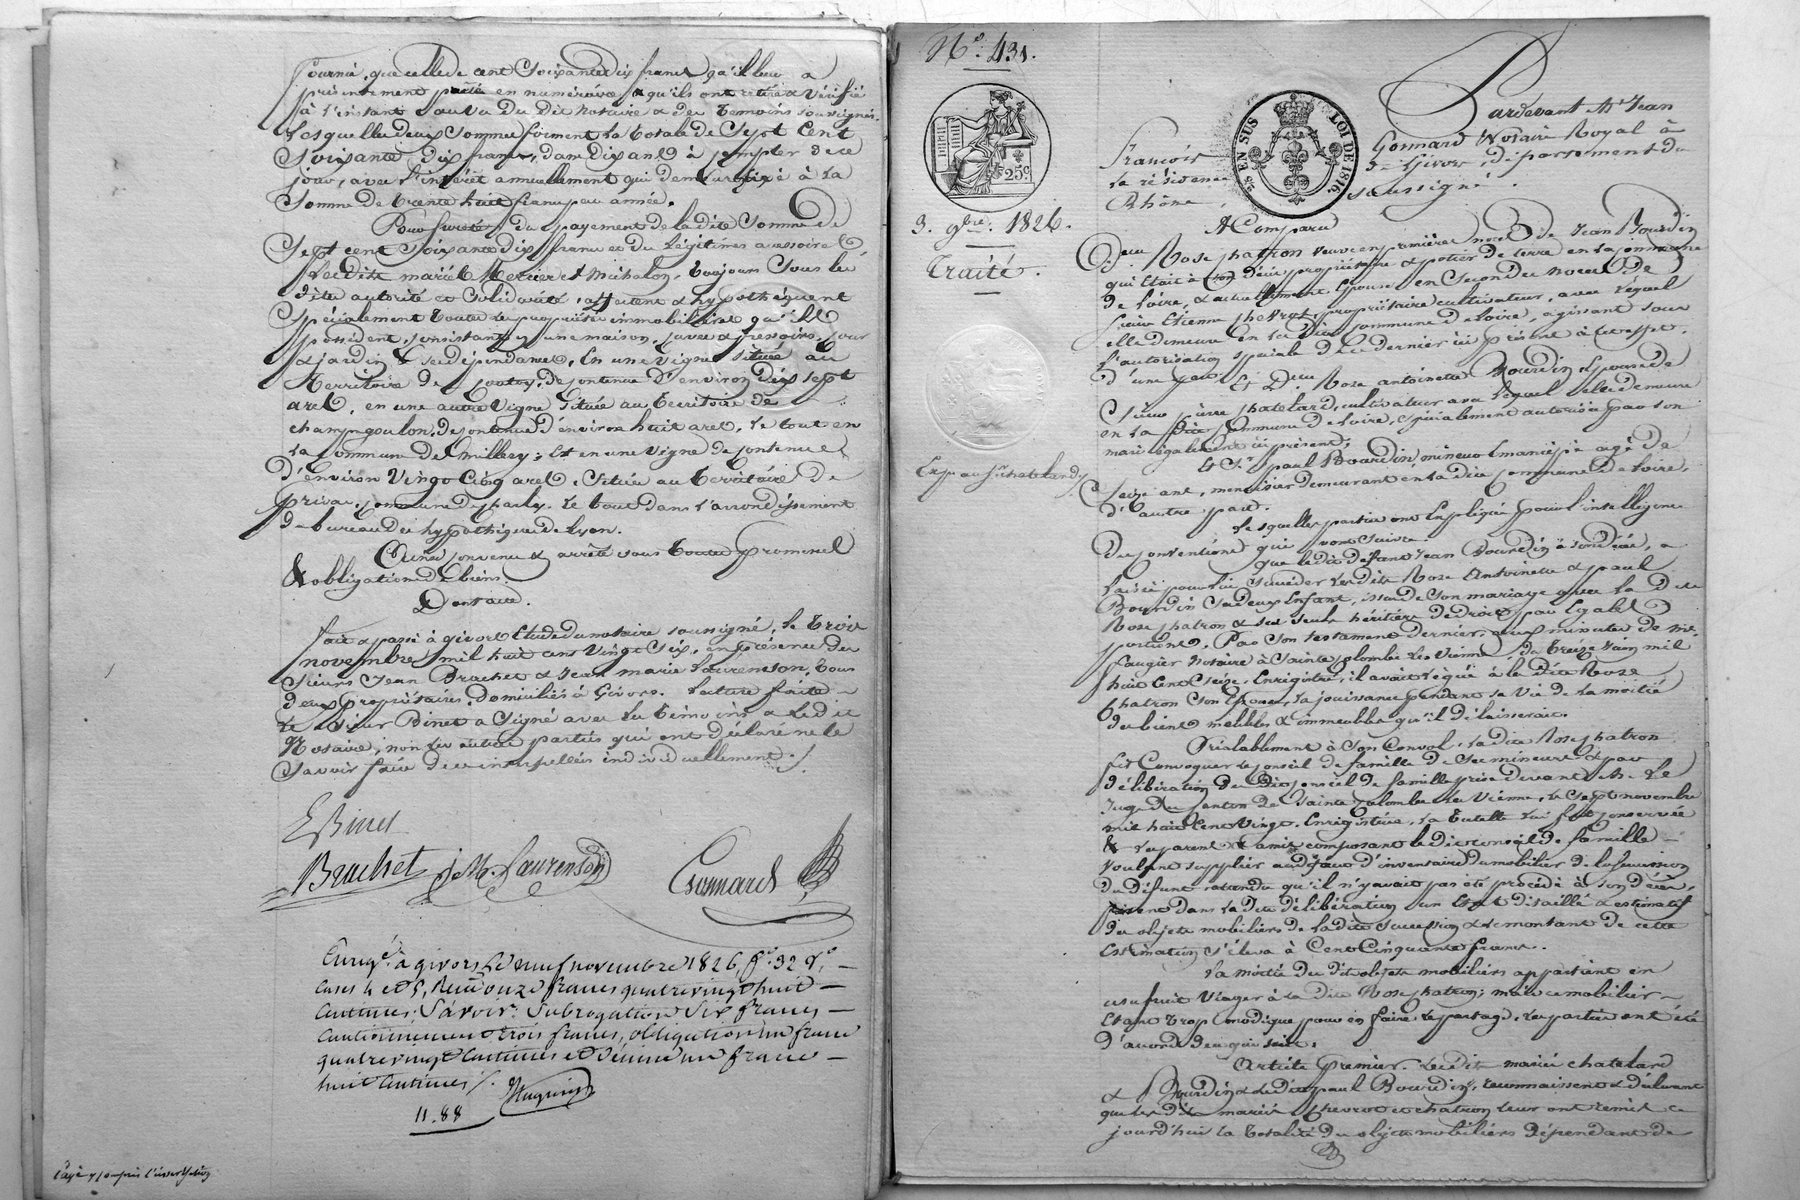 fournie, que celle de cent soixante dix francs qu'il leur a
présentement payée en numéraire & qu'ils ont retirée & vérifié
à l'instant au vu du dit notaire & des témoins soussignés.
Lesquelles deux sommes forment la totale de sept cent
soixante dix francs, dans dix ans à compter de ce
jour, avec l'intérêt annuellement qui demeure fixé à la
somme de trente huit francs par année.
Pour sureté du payement de la dite somme de
sept cent soixante dix francs et des légitimes accessoires
Les dits mariés Mercier & Michalon, toujours sous les
dites autorité et solidarité, affectent & hypothèquent
spécialement toutes les propriétés immobilières qu'ils
possèdent, consistant en une maison, cuves & pressoirs, cour
& jardin & ses dépendances, En une vigne située au
territoire de de contenue d'environ dix sept
ares, en une autre vigne située au territoire de
champgoulon, de contenue d'environ huit ares, le tout en
la commune de Millery; Et en une vigne de contenue
d'environ vingt cinq ares, située au territoire de
commune de charly. Le tout dans l'arrondissement
du bureau des hypothèques de Lyon.
Ainsi convenu & arrêté sous toutes promesses
& obligations de biens.
Dont acte.
fait & passé à givors Etude du notaire soussigné, le trois
novembre mil huit cent vingt six, en présence des
sieurs Jean Brachet & Jean marie Laurenson, tous
deux propriétaires, domiciliés à Givors. Lecture faite
le sieur Binet a signé avec les témoins & le dit
Notaire, non les autres parties qui ont déclaré ne le
savoir faire de ce interpellés individuellement /.
Binet
Brachet J M Laurenson Gonnard
Enregé à givors le neuf novembre 1826, fo 32 Vo
cases 4 et 5, Reçu onze francs quatrevingt huit
centimes; Savoir: Subrogation Six francs
cautionnement trois francs, obligation un franc
quatrevingt centimes et décime un franc
huit centimes /.
11.88
No. 431.
25c
25c EN SUS LOI DE 1816.
3. 9bre. 1826.
Traité.
Exp. au Sr chatelard
Pardevant Me Jean
François Gonnard Notaire Royal à
la résidence de Givors, département du
Rhône, soussigné.
A Comparu
Deme Rose chatron veuve en premières noces de Jean Bourdin
qui était à son décès propriétaire & potier de terre en la commune
de Loire, & actuellement Epouse en secondes noces de
sieur Etienne chevrot, propriétaire cultivateur, avec lequel
elle demeure en la dite commune de Loire, agissant sous
l'autorisation spéciale de ce dernier ici présent à cet effet,
d'une part. Et Deme Rose antoinette Bourdin Epouse de
sieur pierre chatelard, cultivateur avec lequel elle demeure
en la dite commune de Loire, spécialement autorisée par son
mari également ici présent;
Et Sr paul Bourdin, mineur émancipé agé de
seize ans, menuisier demeurant en la dite commune de Loire,
d'autre part.
Lesquelles parties ont Expliqué pour l'intelligence
des conventions qui vont suivre.
que le dit défunt Jean Bourdin à son décès, a
laissé pour lui succéder les dits Rose Antoinette & paul
Bourdin ses deux Enfants, issus de son mariage avec la dite
Rose chatron & ses seuls héritiers de droit par Egales
portions. Par son testament dernier, aux minutes de Me.
faugier Notaire à Sainte Colombe les Vienne, du treize Juin mil
huit cent seize, Enregistré, il avait légué à la dite Rose
Chatron son Epouse, la jouissance pendant sa vie de la moitié
des biens meubles & immeubles qu'il délaisserait.
Préalablement à son Convol, la dite Rose chatron
fit convoquer le conseil de famille de ses mineurs & par
délibération du dit conseil de famille prise devant M. Le
Juge du canton de Sainte Colombe les Vienne, le sept novembre
mil huit cent vingt, Enregistrée, la tutelle lui fut conservée
& les parents & amis composant le dit conseil de famille
voulant suppléer au défaut d'inventaire du mobilier de la succession
du défunt attendu qu'il n'y avait pas été procédé à son décès,
firent dans la dite délibération un Etat détaillé & estimatif
des objets mobiliers de la dite succession & le montant de cette
Estimation s'éleva à Cent Cinquante francs.
La moitié des dits objets mobiliers appartient en
usufruit viager à la dite Rose chatron; mais ce mobilier
Etant trop modique pour en faire le partage, les parties ont été
d'accord de ce qui suit.
Article premier. Les dits mariés chatelard
& Bourdin & le dit paul Bourdin, reconnaissent & déclarent
que les dits mariés chevrot et chatron leur ont remis ce
jourd'hui la totalité des objets mobiliers dépendant de